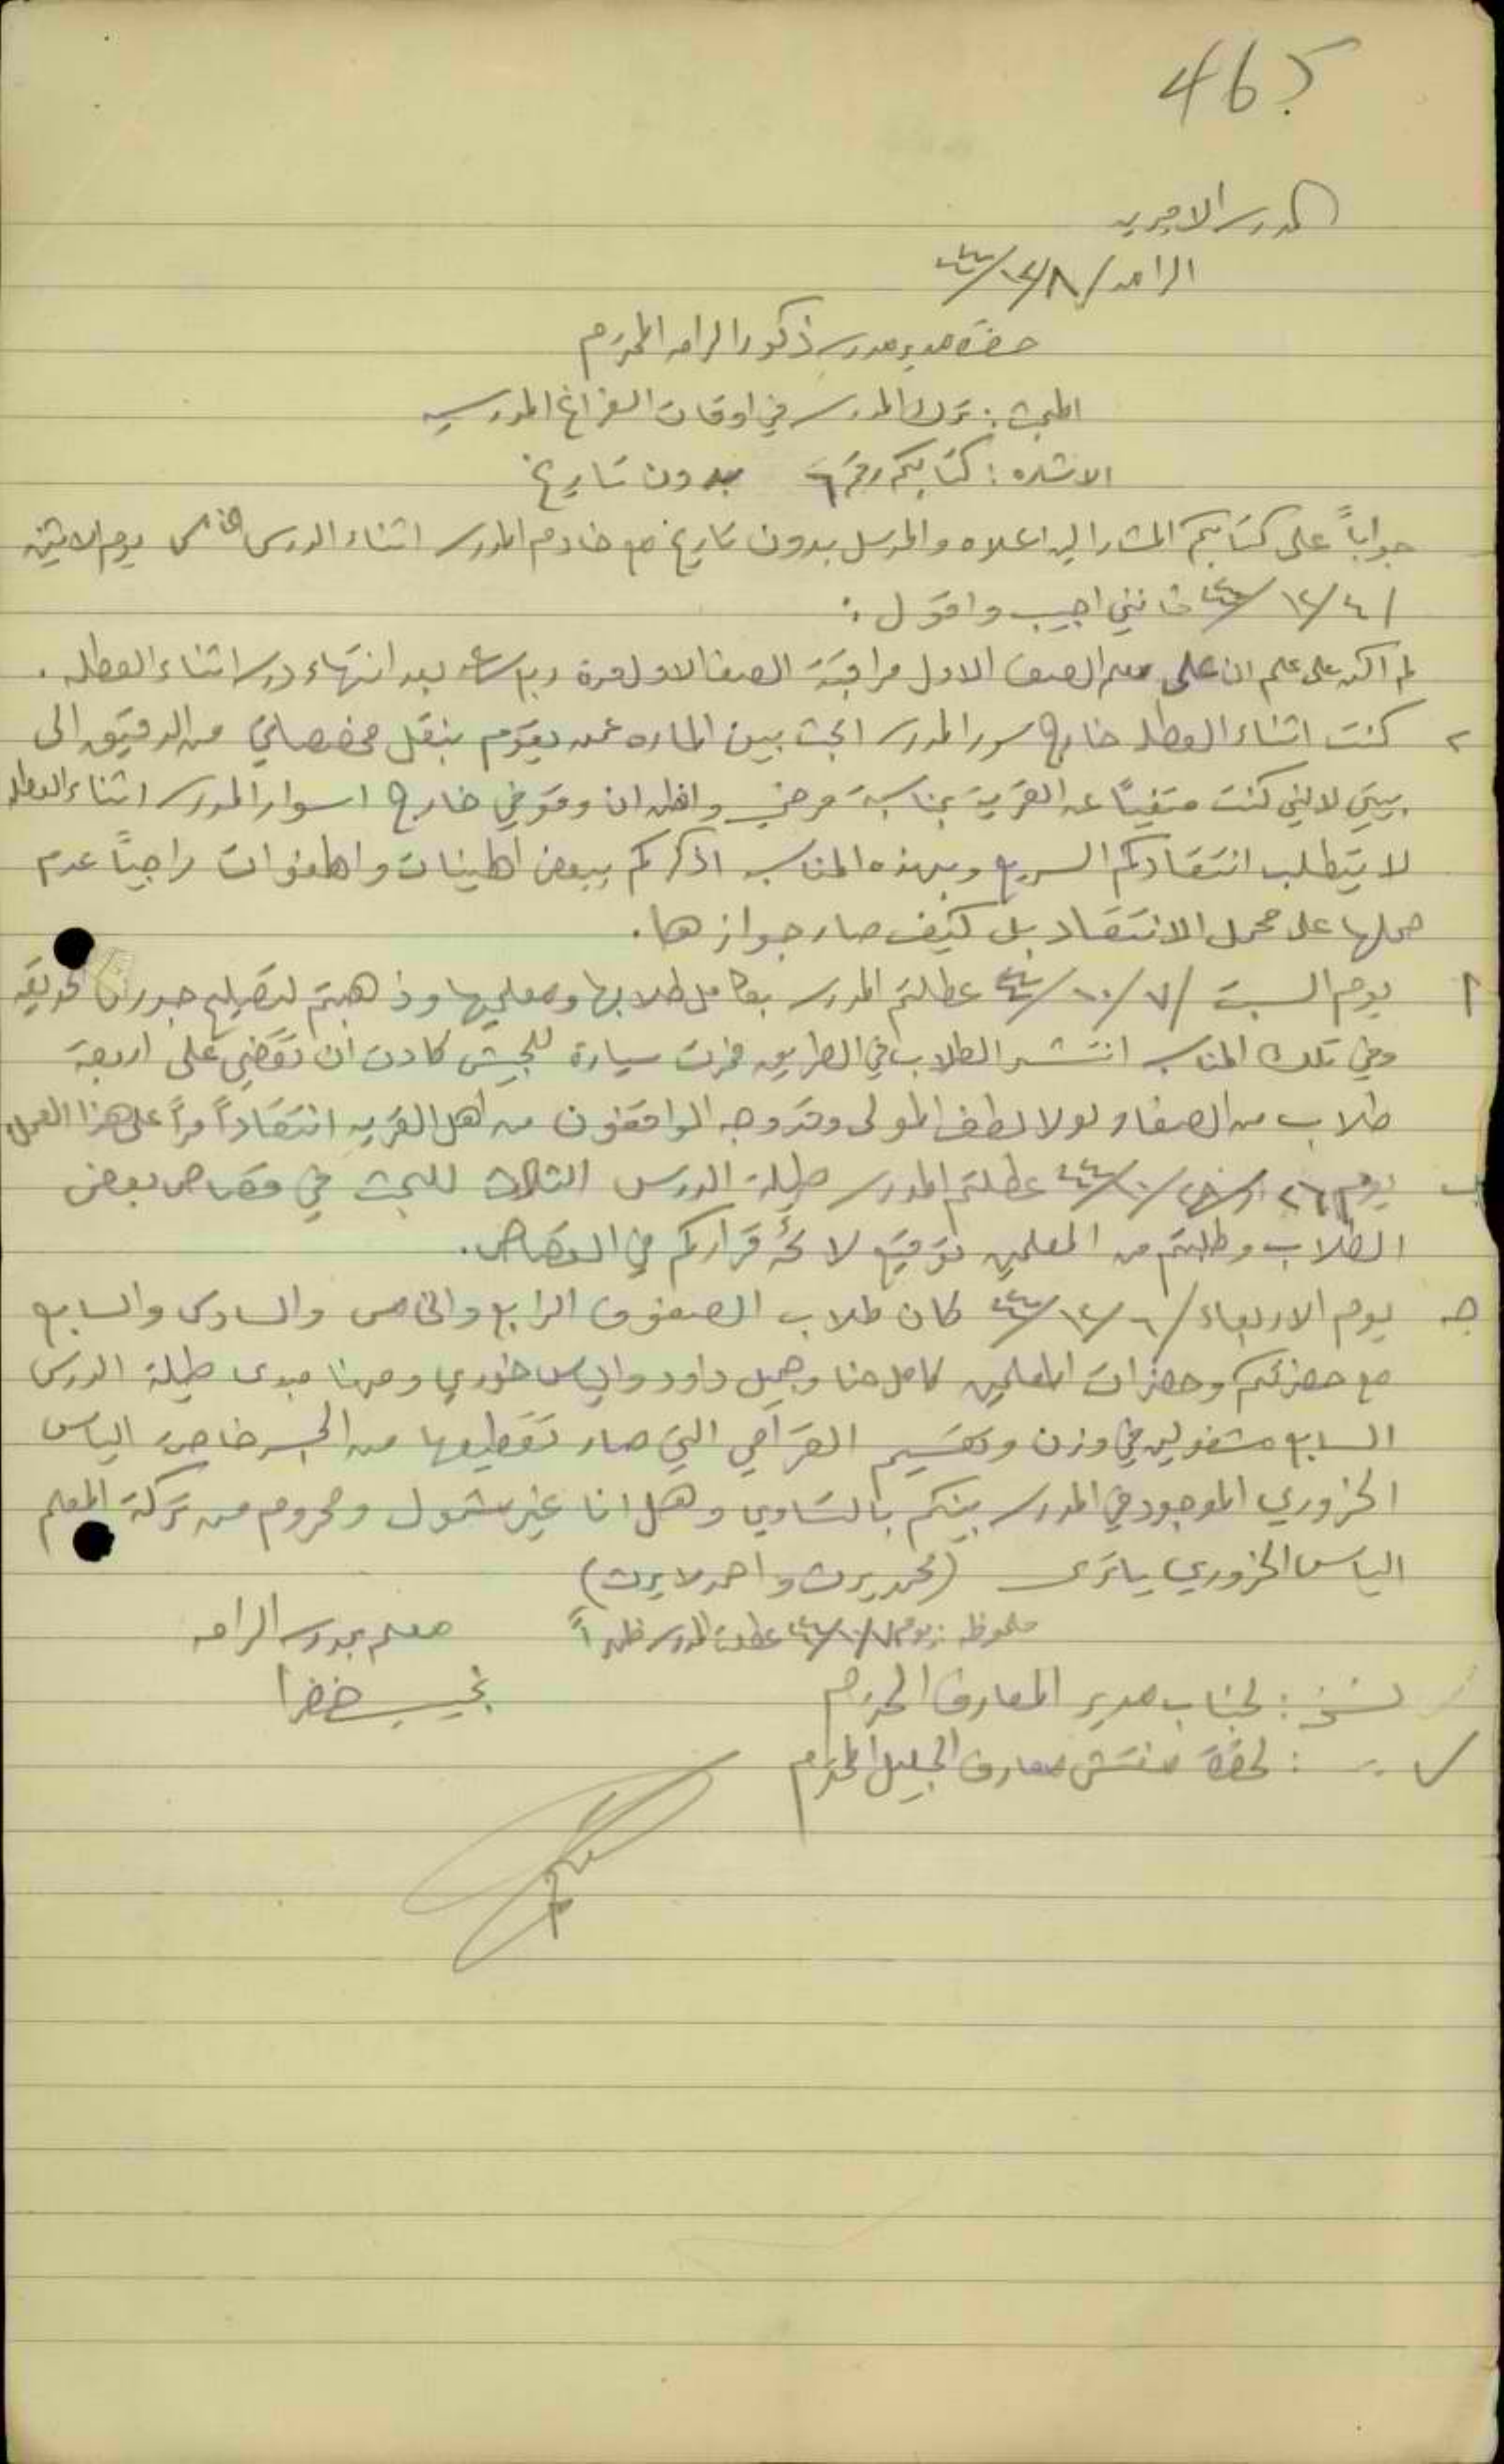 465
المدرسه الاميريه
الرامه / ٨/١٢/٤٤
حضرة مدير مدرسة ذكور الرامه المحترم
المبحث : ترك المدرسه في اوقات الفراغ المدرسيه
الاشاره : كتابكم رقم ٦ بدون تاريخ
جواباً على كتابكم المشار اليه اعلاه والمرسل بدون تاريخ مع خادم المدرسه اثناء الدرس الخامس يوم الاثنين
٤/١٢/٤٤ فانني اجيب واقول :
لم اكن على علم ان على معلم الصف الاول مراقبة الصف الاول مرة بعد انتهاء درسه اثناء العطله .
٢ كنت اثناء العطله خارج سور المدرسه ابحث بين الماره عمن يقوم بنقل مخصصاتي من الدقيق الى
بيتي لانني كنت متغيباً عن القرية بمناسبة مرضي واظن ان وقوفي خارج اسوار المدرسه اثناء العطله
لا يتطلب انتقادكم السريع وبهذه المناسبه اذكركم ببعض الهينات والهفوات راجياً عدم
حملها على محمل الانتقاد بل كيف صار جوازها .
أ يوم السبت ٧/١٠/٤٤ عطلتم المدرسه بكامل طلابها ومعلميها وذهبتم لتصليح جدران الحديقه
وفي تلك المناسبه انتشر الطلاب في الطريق فمرت سيارة للجيش كادت ان تقضي على اربعة
طلاب من الصغار لولا لطف المولى وقد وجه الواقفون من اهل القريه انتقاداً مراً على هذا العمل
ب يوم ٢٦ /١٠/٤٤ عطلتم المدرسه طيلة الدرس الثالث للبحث في قصاص بعض
الطلاب وطلبتم من المعلمين توقيع لائحة قراركم في القصاص .
جـ يوم الاربعاء ٦/١٢/٤٤ كان طلاب الصفوف الرابع والخامس والسادس والسابع
مع حضرتكم وحضرات المعلمين كامل حنا وجميل داود والياس خوري ومهنا مبدى طيلة الدرس
السابع مشغولين في وزن وتقسيم القرامي التي صار تقطيعها من الحرش خاصة الياس
الخزوري الموجود في المدرسه بينكم بالتساوي وهل انا غير مشمول ومحروم من تركة المعلم
الياس الخزوري يا ترى (محمد يرث واحمد لا يرث)
ملحوظه : يوم ٧/١٠/٤٤ عطلت المدرسه ظهراً
معلم بمدرسة الرامه
نسخه : لجناب مدير المعارف المحترم
نجيب خضرا
" : لحضرة مفتش معارف الجليل المحترم